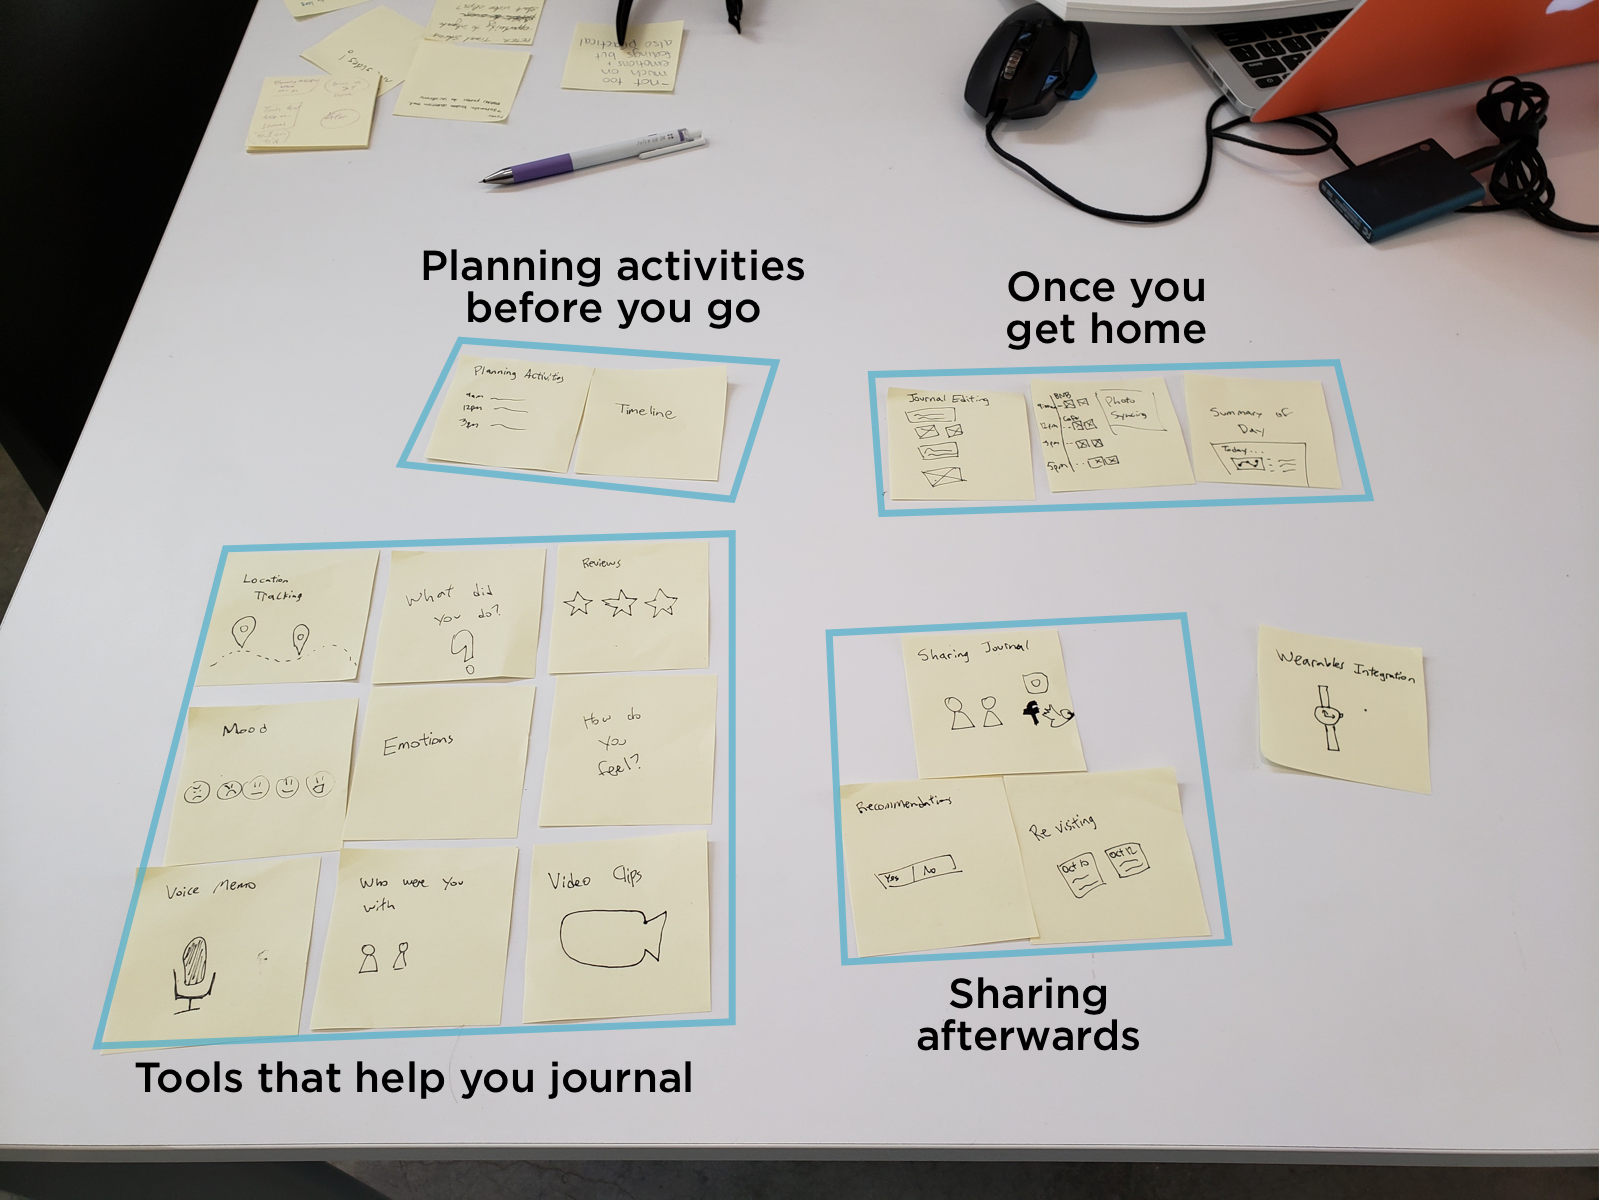 - not too
much on
emotions +
feelings but
also practical
Planning activities
before you go
Planning Activities
9am
12pm
3pm
Timeline
Once you
get home
Journal Editing
BNB
9:00am
Cafe
12pm
3pm
5pm
Photo
Syncing
Summary of
Day
Today...
Location
Tracking
What did
you do?
?
Reviews
Mood
Emotions
How do
you
feel?
Voice Memo
Who were you
with
Video Clips
Tools that help you journal
Sharing Journal
f
Recommendations
Yes
No
Revisiting
Oct 10
Oct 12
Sharing
afterwards
Wearables Integration